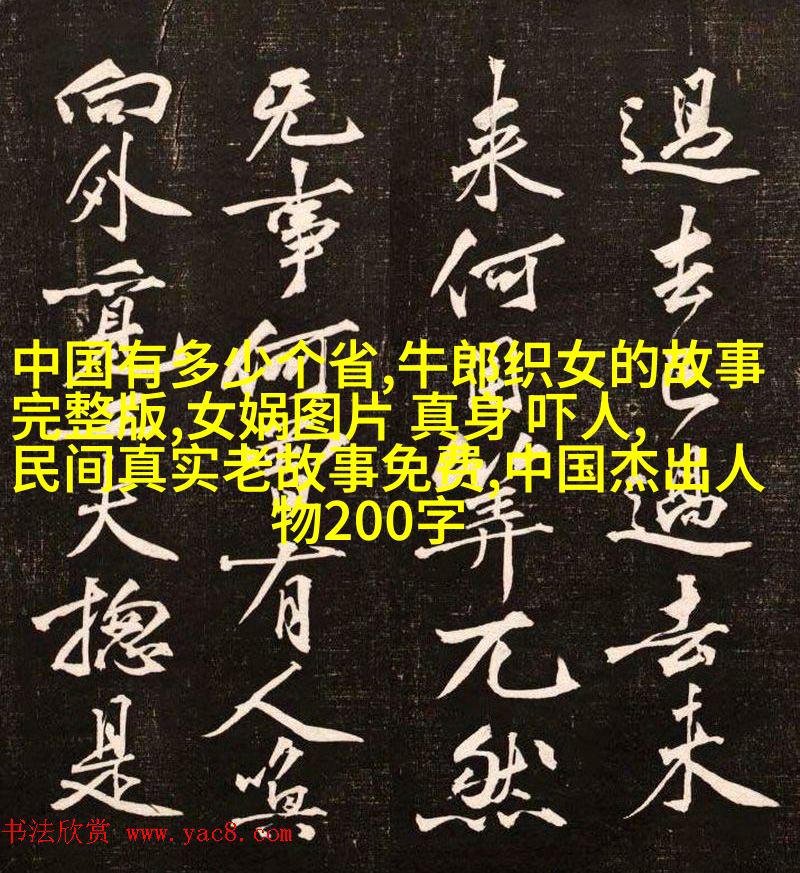 過去已過去未
来何用筭兀然
无事何曾有人喚
向外工夫揔是
中国有多少个省,牛郎织女的故事
完整版,女娲图片 真身 吓人,
民间真实老故事免费,中国杰出人
物200字
书法欣赏 www.yac8.com